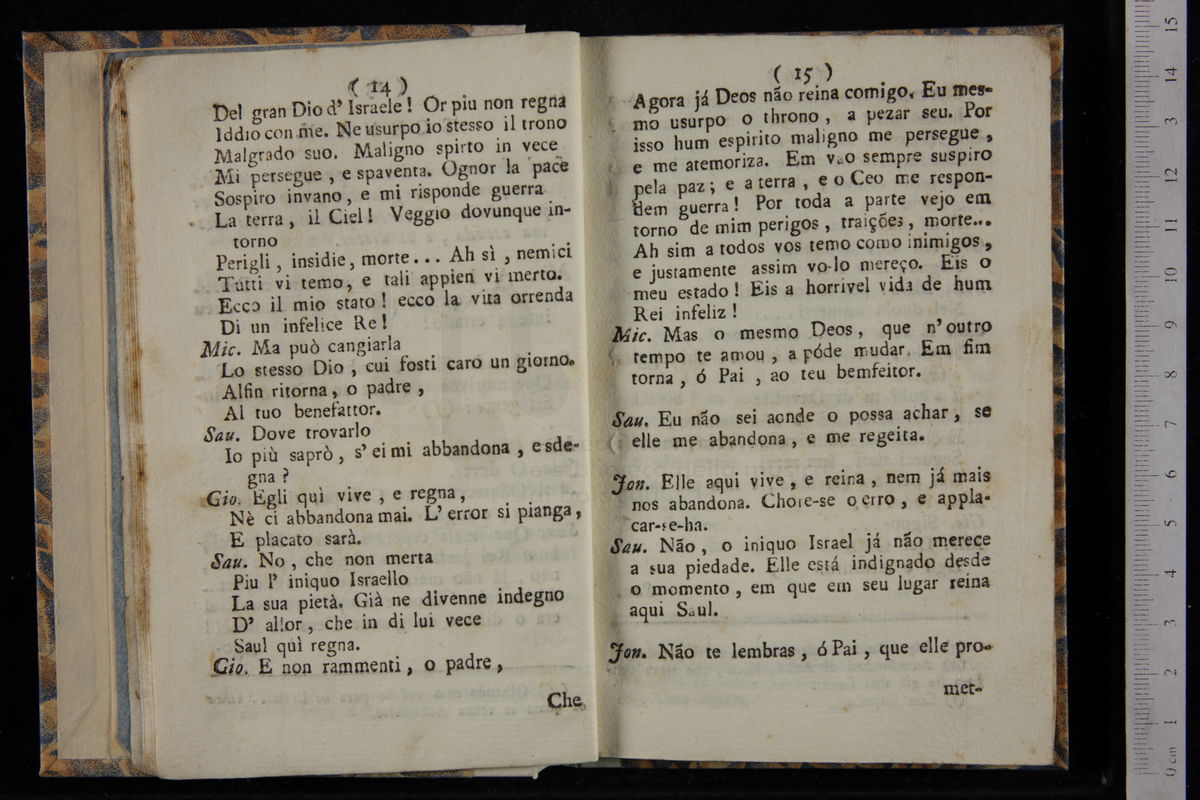 ( 14 )
Del gran Dio d' Israele! Or piu non regna
Iddio con me. Ne usurpo io stesso il trono
Malgrado suo. Maligno spirto in vece
Mi persegue, e spaventa. Ognor la pace
Sospiro invano, e mi risponde guerra
La terra, il Ciel! Veggio dovunque in-
torno
Perigli, insidie, morte... Ah sì, nemici
Tutti vi temo, e tali appien vi merto.
Ecco il mio stato! ecco la vita orrenda
Di un infelice Re!
Mic. Ma può cangiarla
Lo stesso Dio, cui fosti caro un giorno.
Alfin ritorna, o padre,
Al tuo benefattor.
Sau. Dove trovarlo
Io più saprò, s' ei mi abbandona, e sde-
gna?
Gio. Egli quì vive, e regna,
Nè ci abbandona mai. L' error si pianga,
E placato sarà.
Sau. No, che non merta
Piu l' iniquo Israello
La sua pietà. Già ne divenne indegno
D' allor, che in di lui vece
Saul quì regna.
Gio. E non rammenti, o padre,
Che
( 15 )
Agora já Deos não reina comigo. Eu mes-
mo usurpo o throno, a pezar seu. Por
isso hum espirito maligno me persegue,
e me atemoriza. Em vao sempre suspiro
pela paz; e a terra, e o Ceo me respon-
dem guerra! Por toda a parte vejo em
torno de mim perigos, traições, morte...
Ah sim a todos vos temo como inimigos,
e justamente assim vo-lo mereço. Eis o
meu estado! Eis a horrivel vida de hum
Rei infeliz!
Mic. Mas o mesmo Deos, que n' outro
tempo te amou, a póde mudar. Em fim
torna, ó Pai, ao teu bemfeitor.
Sau. Eu não sei aonde o possa achar, se
elle me abandona, e me regeita.
Jon. Elle aqui vive, e reina, nem já mais
nos abandona. Chore-se o erro, e appla-
car-se-ha.
Sau. Não, o iniquo Israel já não merece
a sua piedade. Elle está indignado desde
o momento, em que em seu lugar reina
aqui Saul.
Jon. Não te lembras, ó Pai, que elle pro-
met-
0 cm 1 2 3 4 5 6 7 8 9 10 11 12 13 14 15